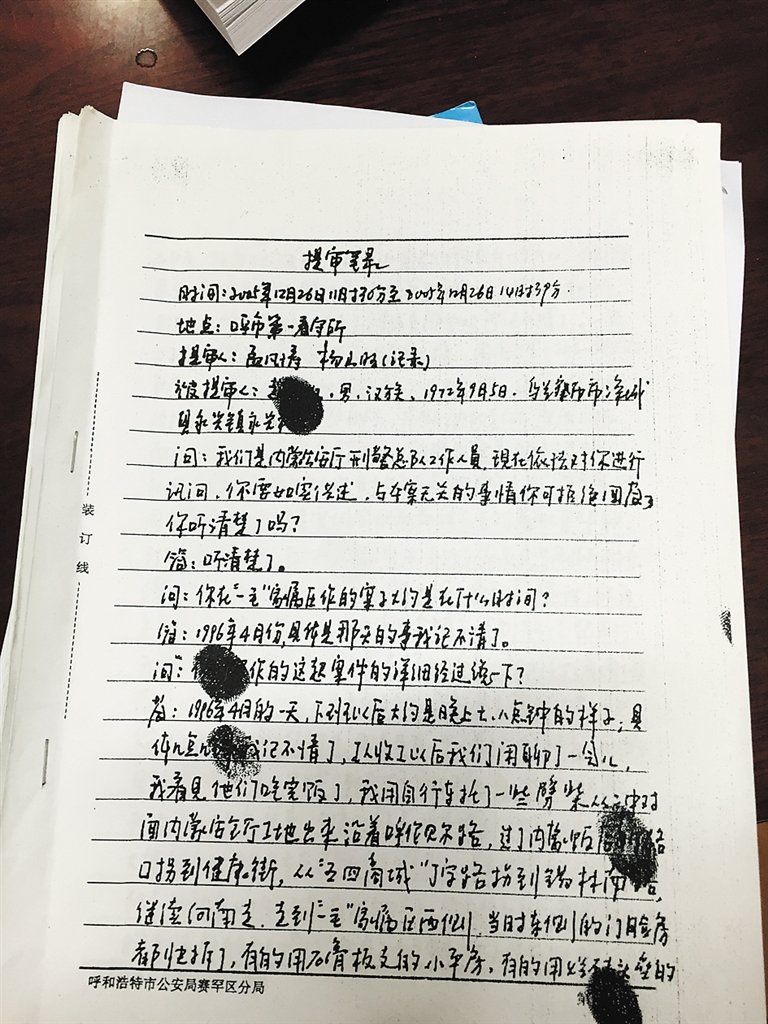 提审笔录
时间：2005年12月26日11时30分至2005年12月26日14时39分
地点：呼市第一看守所
提审人：孟 杨 （记录）
被提审人： ，男，汉族，1972年9月5日，乌兰察布市凉城
县永兴镇永兴
问：我们是内蒙公安厅刑警总队工作人员，现在依法对你进行
讯问，你要如实供述，与本案无关的事情你可拒绝回答，
你听清楚了吗？
答：听清楚了。
问：你在“一毛”家属区作的案子大约是在什么时间？
答：1996年4月份，具体是那天的事我记不清了。
问： 作的这起案件的详细经过说一下？
答：1996年4月的一天，下班以后大约是晚上七、八点钟的样子，具
体几点几 我记不清了，工人收工以后我们闲聊了一会儿，
我看见他们吃完饭了，我用自行车托了一些劈柴从二中对
面内蒙安全厅工地出来沿着呼伦贝尔路，过了内蒙 路
口拐到健康街，从“五四商城”丁字路拐到锡林南路，
继续向南走，走到“一毛”家属区西侧，当时东侧的门脸房
都快拆了，有的用石膏板支的小平房，有的用 的
呼和浩特市公安局赛罕区分局
第
装订线